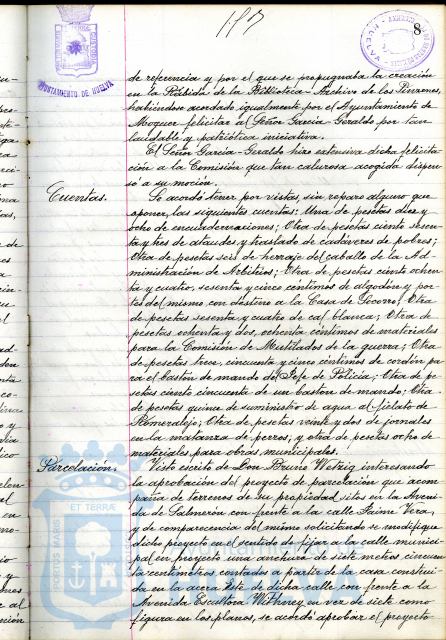 8
AYUNTAMIENTO DE HUELVA
de referencia y por el que se propugnaba la creación
en la Rábida de la Biblioteca-Archivo de los Pinzones,
habiéndose acordado igualmente por el Ayuntamiento de
Moguer felicitar al Señor García-Geraldo por tan
laudable y patriótica iniciativa.
El Señor García-Geraldo hizo extensiva dicha felicita-
ción a la Comisión que tan calurosa acogida dispen-
só a su moción.
Cuentas.
Se acordó tener por vistas, sin reparo alguno que
oponer, las siguientes cuentas: Una de pesetas diez y
ocho de encuadernaciones; Otra de pesetas ciento sesen-
ta y tres de ataudes y traslado de cadáveres de pobres;
Otra de pesetas seis de herraje del caballo de la Ad-
ministración de Arbitrios; Otra de pesetas ciento ochen-
ta y cuatro, sesenta y cinco céntimos de algodón y por-
tes del mismo, con destino a la Casa de Socorro; Otra
de pesetas sesenta y cuatro de cal blanca; Otra de
pesetas ochenta y dos, ochenta céntimos de materiales
para la Comisión de Mutilados de la guerra; Otra
de pesetas trece, cincuenta y cinco céntimos de cordón pa-
ra el bastón de mando del Jefe de Policía; Otra de pe-
setas ciento cincuenta de un bastón de mando; Otra
de pesetas quince de suministro de agua al fielato de
Romeralejo; Otra de pesetas veinte y dos de jornales
en la matanza de perros; y otra de pesetas ocho de
materiales para obras municipales.
Parcelación.
Visto escrito de Don Bruno Wetzig interesando
la aprobación del proyecto de parcelación que acom-
paña de terrenos de su propiedad sitos en la Aveni-
da de Salmerón con frente a la calle Jaime Vera,
y de comparecencia del mismo solicitando se modifique
dicho proyecto en el sentido de fijar a la calle munici-
pal en proyecto una anchura de siete metros, cincuen-
ta centímetros contados a partir de la casa construi-
da en la acera Este de dicha calle con frente a la
Avenida Escultora Withney en vez de siete como
figura en los planos, se acordó aprobar el proyecto
PORTUS MARIS ET TERRAE